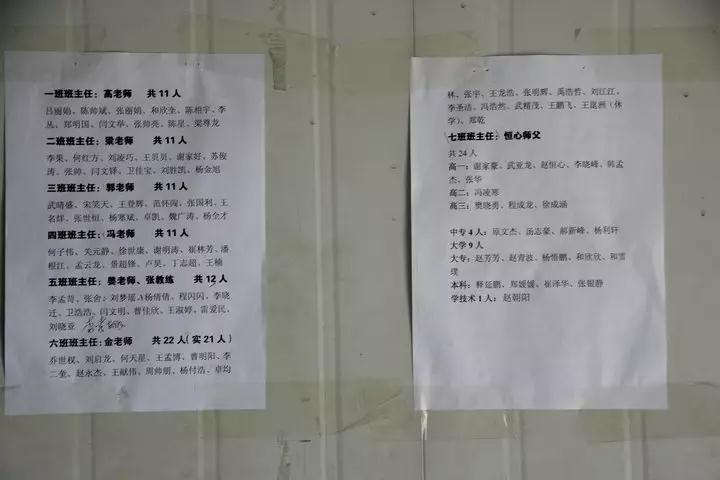 一班班主任：高老师 共 11 人
吕丽娟、陈帅斌、张丽娟、和欣奎、陈相宇、李
丛、郑明国、闫文举、张帅亮、陈星、梁尊龙
二班班主任：梁老师 共 11 人
李果、何红方、刘凌巧、王贝贝、谢家好、苏俊
涛、张帅、闫文铎、卫佳宝、刘胜凯、杨金旭
三班班主任：郭老师 共 11 人
武晴盛、宋笑天、王登辉、范怀闯、张国利、王
名烊、张世恒、杨寒斌、卓凯、魏广涛、杨全才
四班班主任：冯老师 共 11 人
何子伟、关元静、徐世康、谢明涛、崔林芳、潘
根江、孟云龙、景超锋、卢昊、丁志超、王楠
五班班主任：姜老师、张教练 共 12 人
李孟苛、张舍、刘梦瑶、杨倩倩、程闪闪、李晓
迁、卫浩浩、闫文明、曹佳欣、王淑婷、雷爱民、
刘晓亚
六班班主任：金老师 共 22 人(实 21 人)
乔世权、刘启龙、何天星、王孟博、曾明阳、李
二奎、赵永杰、王献伟、周帅朋、杨付浩、卓均
林、张宇、王龙浩、张明辉、禹浩哲、刘江江、
李圣洁、冯浩然、武精茂、王鹏飞、王崑洲（休
学）、郑乾
七班班主任：恒心师父
共 24 人
高一：谢家豪、武亚龙、赵恒心、李晓峰、韩孟
杰、张华
高二：冯凌寒
高三：樊晓勇、程成龙、徐成涵
中专 4 人：原文杰、汤志豪、郝新峰、杨利轩
大学 9 人
大专：赵芳芳、赵青波、杨悟鹏、和欣欣、和雪
璞
本科：释延鹏、郑媛媛、崔泽华、张银静
学技术 1 人：赵朝阳